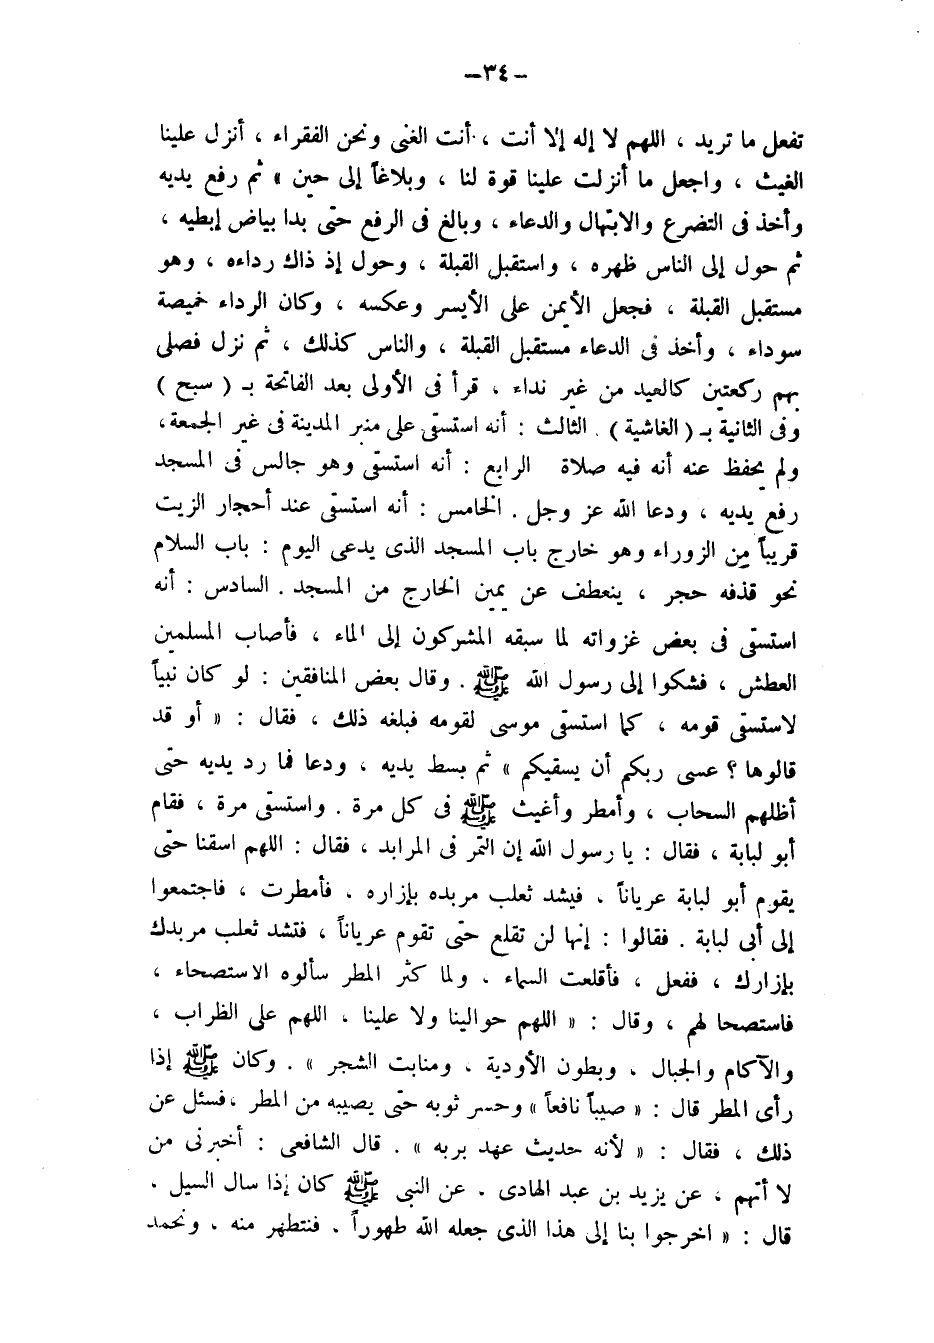 -٣٤-
تفعل ما تريد ، اللهم لا إله إلا أنت ، أنت الغنى ونحن الفقراء ، أنزل علينا
الغيث ، واجعل ما أنزلت علينا قوة لنا ، وبلاغاً إلى حين » ثم رفع يديه
وأخذ فى التضرع والابتهال والدعاء ، وبالغ فى الرفع حتى بدا بياض إبطيه ،
ثم حول إلى الناس ظهره ، واستقبل القبلة ، وحول إذ ذاك رداءه ، وهو
مستقبل القبلة ، فجعل الأيمن على الأيسر وعكسه ، وكان الرداء خميصة
سوداء ، وأخذ فى الدعاء مستقبل القبلة ، والناس كذلك ، ثم نزل فصلى
بهم ركعتين كالعيد من غير نداء ، قرأ فى الأولى بعد الفاتحة بـ ( سبح )
وفى الثانية بـ ( الغاشية ) . الثالث : أنه استسقى على منبر المدينة فى غير الجمعة ،
ولم يحفظ عنه أنه فيه صلاة الرابع : أنه استسقى وهو جالس فى المسجد
رفع يديه ، ودعا الله عز وجل . الخامس : أنه استسقى عند أحجار الزيت
قريباً من الزوراء وهو خارج باب المسجد الذى يدعى اليوم : باب السلام
نحو قذفه حجر ، ينعطف عن يمين الخارج من المسجد . السادس : أنه
استسقى فى بعض غزواته لما سبقه المشركون إلى الماء ، فأصاب المسلمين
العطش ، فشكوا إلى رسول الله ﷺ . وقال بعض المنافقين : لو كان نبياً
لاستسقى قومه ، كما استسقى موسى لقومه فبلغه ذلك ، فقال : « أو قد
قالوها ؟ عسى ربكم أن يسقيكم » ثم بسط يديه ، ودعا فما رد يديه حتى
أظلهم السحاب ، وأمطر وأغيث ﷺ فى كل مرة . واستسقى مرة ، فقام
أبو لبابة ، فقال : يا رسول الله إن التمر فى المرابد ، فقال : اللهم اسقنا حتى
يقوم أبو لبابة عرياناً ، فيشد ثعلب مربده بإزاره . فأمطرت ، فاجتمعوا
إلى أبى لبابة . فقالوا : إنها لن تقلع حتى تقوم عرياناً ، فتشد ثعلب مربدك
بإزارك ، ففعل ، فأقلعت السماء . ولما كثر المطر سألوه الاستصحاء ،
فاستصحا لهم ، وقال : « اللهم حوالينا ولا علينا ، اللهم على الظراب ،
والآكام والجبال ، وبطون الأودية ، ومنابت الشجر » . وكان ﷺ إذا
رأى المطر قال : « صيباً نافعاً » وحسر ثوبه حتى يصيبه من المطر ، فسئل عن
ذلك ، فقال : « لأنه حديث عهد بربه » . قال الشافعى : أخبرنى من
لا أتهم ، عن يزيد بن عبد الهادى . عن النبى ﷺ كان إذا سال السيل .
قال : « اخرجوا بنا إلى هذا الذى جعله الله طهوراً . فنتطهر منه . ونحمد